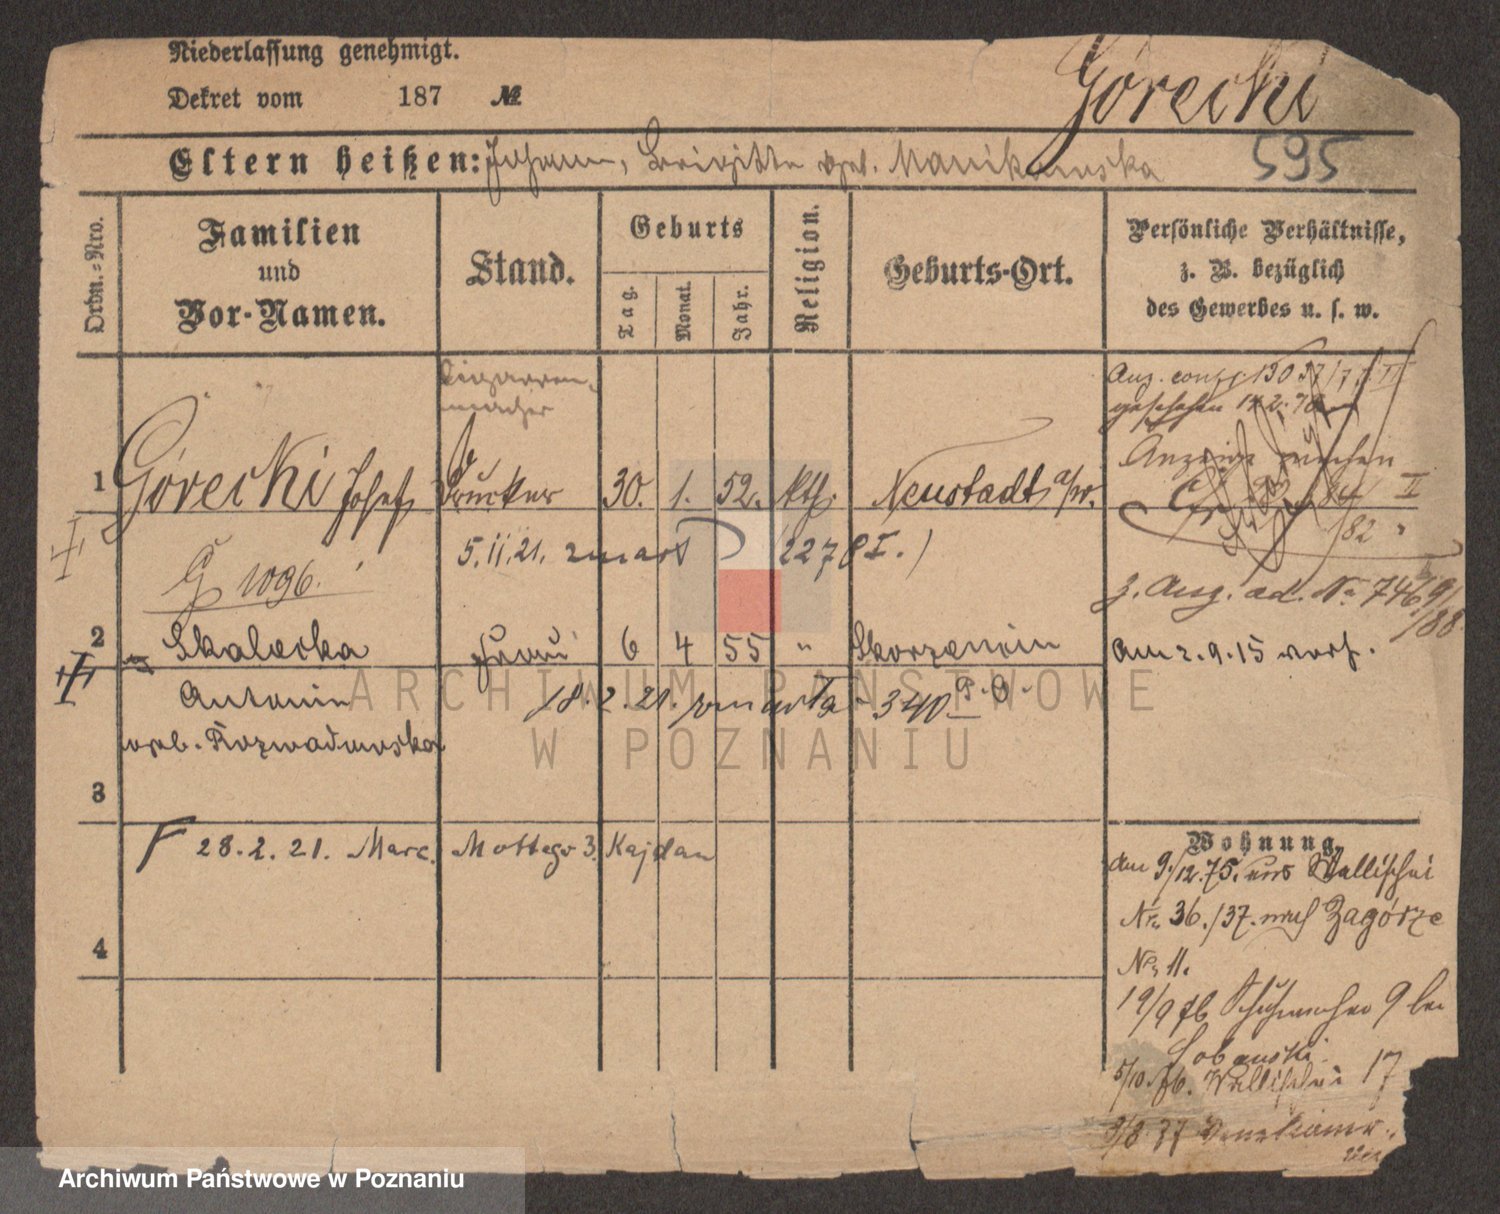 Niederlassung genehmigt.
Dekret vom 187 №
Górecki
Eltern heißen: Johann, Brigitta geb. Manikowska
595
Ordn.=Nro.
Familien
und
Vor-Namen.
Stand.
Geburts
Tag.
Monat.
Jahr.
Religion.
Geburts-Ort.
Persönliche Verhältnisse,
z. B. bezüglich
des Gewerbes u. s. w.
Cigarren-
macher
1 Górecki Josef Drucker 30. 1. 52. Kth. Neustadt a/W.
5.11.21. zmarł (2278 I.)
G 1096.
Anzeige machen
II
82
z. Ang. ad. No 746 9/88
2 Skalecka Frau 6 4 55 " Skorzencin am 2.9.15 verh.
Antonin 18.2.21. zmarła 340 P.O.
geb. Rozwadowska
3
28.2.21. Marc. Mottego 3. Kajdan
4
Wohnung.
am 9/12.75. von Wallischei
Nr. 36./37. nach Zagórze
No 11.
19/9 76 Schuhmacher 9 bei
5/10. 76. Wallischei 17
3/8 77 Venetianer
ARCHIWUM PAŃSTWOWE
W POZNANIU
Archiwum Państwowe w Poznaniu